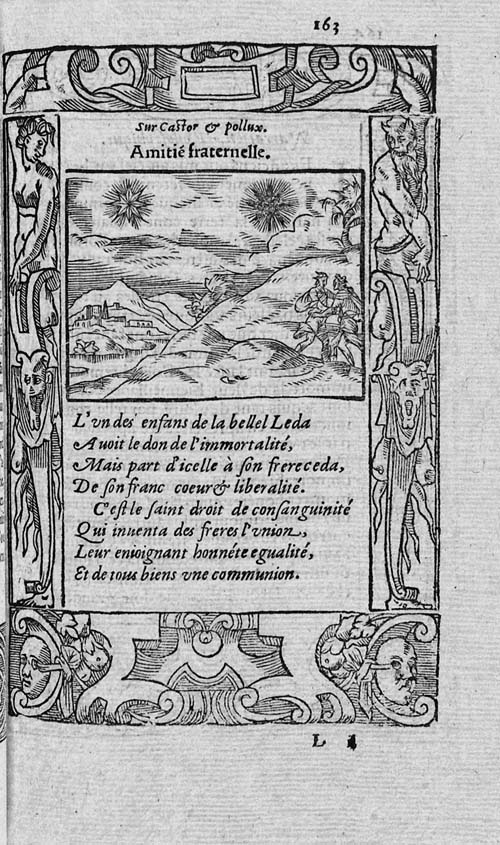 163
Sur Castor & pollux.
Amitié fraternelle.
L'vn des enfans de la bellel Leda
Auoit le don de l'immortalité,
Mais part d'icelle à son frere ceda,
De son franc coeur & liberalité.
C'est le saint droit de consanguinité
Qui inuenta des freres l'vnion,
Leur enioignant honnéte egualité,
Et de tous biens vne communion.
L